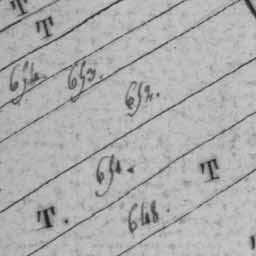 T
T
654.
653.
652.
651.
T
T.
648.